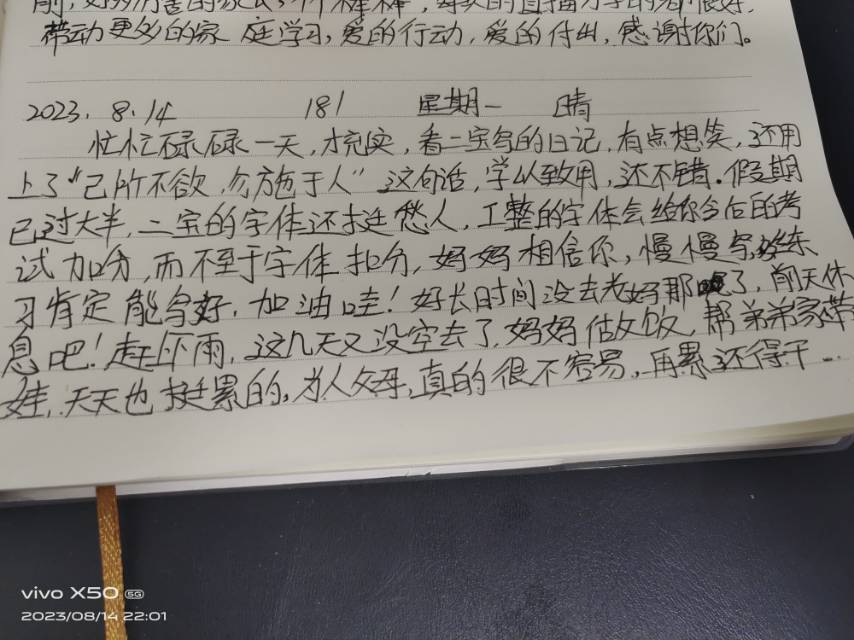 带动更多的家庭学习,爱的行动,爱的付出,感谢你们。
2023.8.14 181 星期一 晴
忙忙碌碌一天,才充实,看二宝写的日记,有点想笑,还用
上了“己所不欲,勿施于人”这句话,学以致用,还不错。假期
已过大半,二宝的字体还挺愁人,工整的字体会给你今后的考
试加分,而不至于字体扣分,妈妈相信你,慢慢写练
习肯定能写好,加油哇!好长时间没去老妈那了,前天休
息吧!赶下雨,这几天又没空去了,妈妈做饭,帮弟弟家带
娃,天天也挺累的,为人父母,真的很不容易,再累还得干...
vivo X50 5G
2023/08/14 22:01